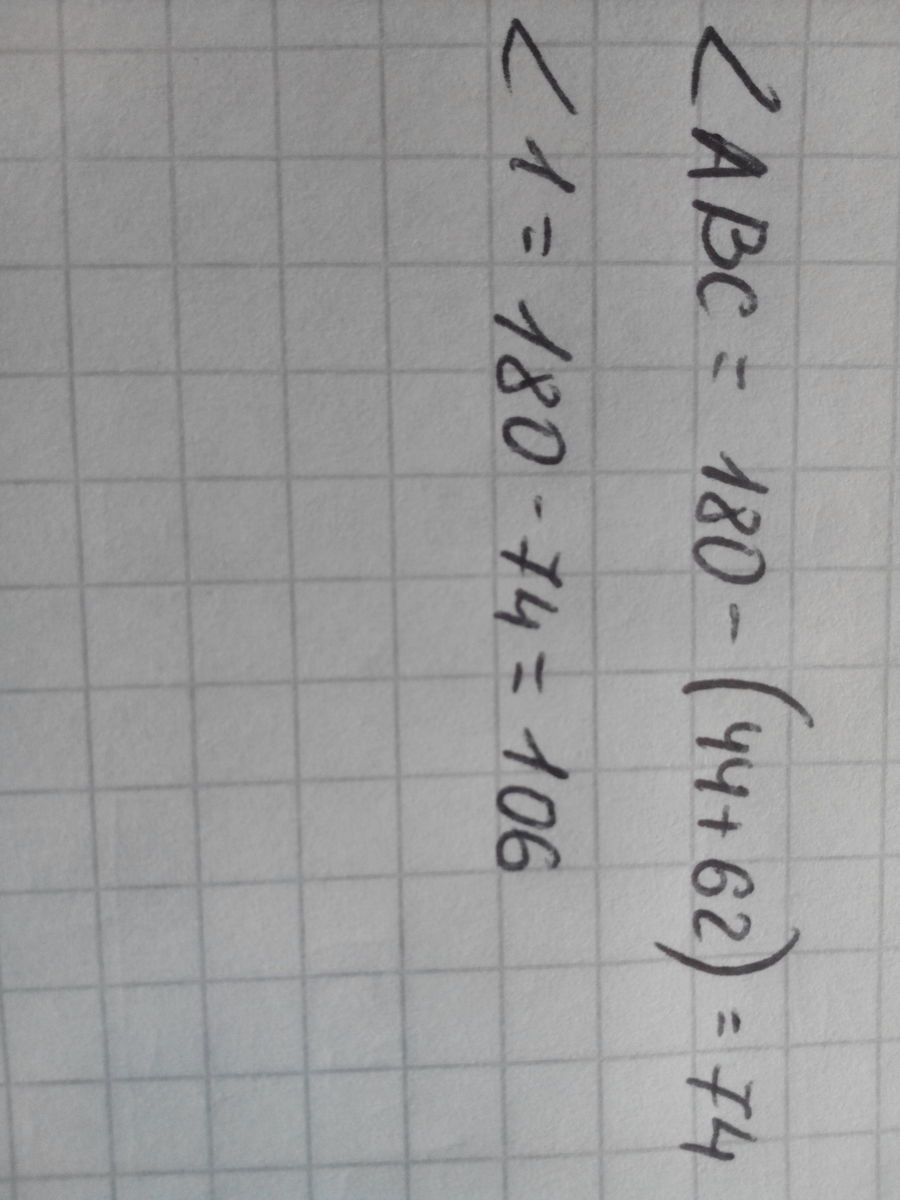 ∠ABC = 180 - (44 + 62) = 74
∠1 = 180 - 74 = 106